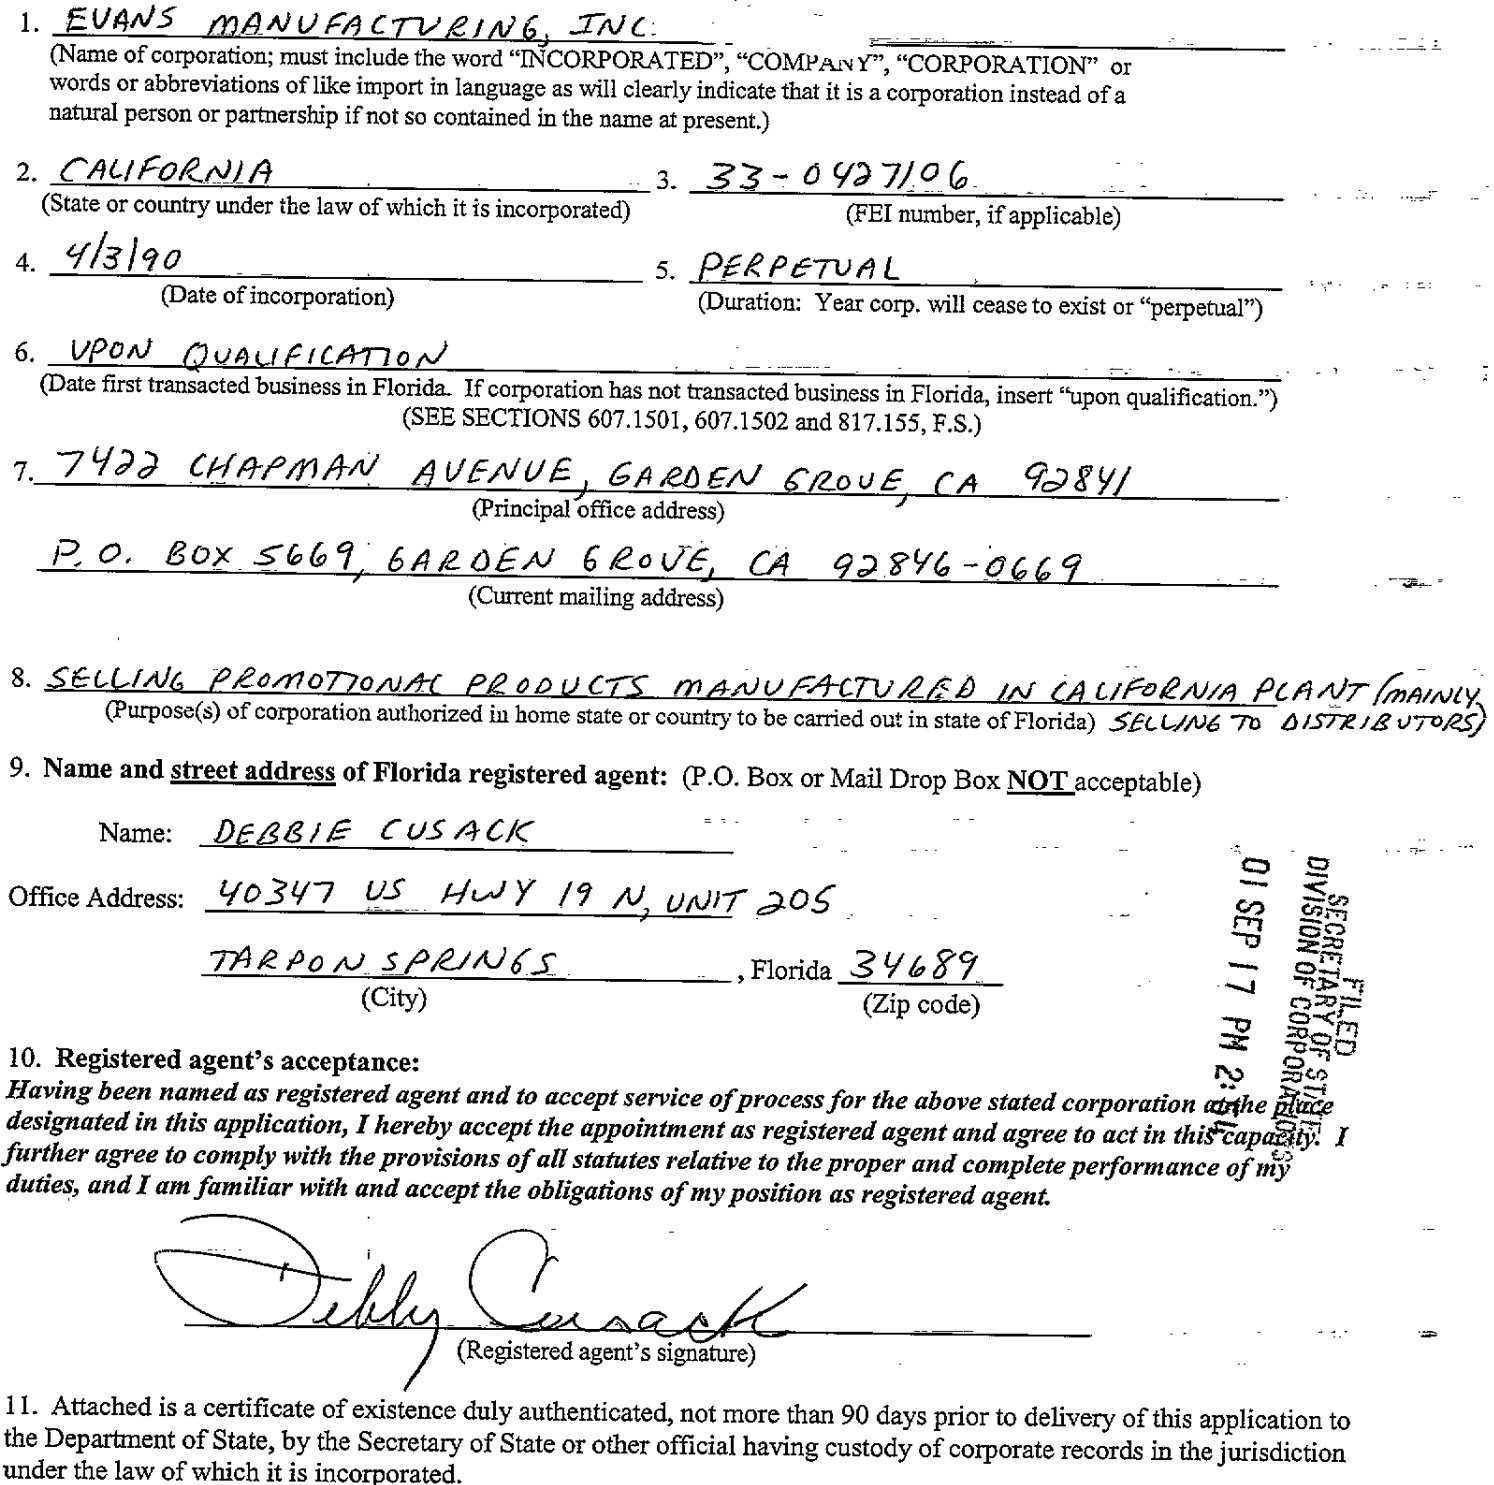 1. EVANS MANUFACTURING, INC.
(Name of corporation; must include the word “INCORPORATED”, “COMPANY”, “CORPORATION” or
words or abbreviations of like import in language as will clearly indicate that it is a corporation instead of a
natural person or partnership if not so contained in the name at present.)
2. CALIFORNIA 3. 33-0427106
(State or country under the law of which it is incorporated) (FEI number, if applicable)
4. 4/3/90 5. PERPETUAL
(Date of incorporation) (Duration: Year corp. will cease to exist or “perpetual”)
6. UPON QUALIFICATION
(Date first transacted business in Florida. If corporation has not transacted business in Florida, insert “upon qualification.”)
(SEE SECTIONS 607.1501, 607.1502 and 817.155, F.S.)
7. 7422 CHAPMAN AVENUE, GARDEN GROVE, CA 92841
(Principal office address)
P.O. BOX 5669, GARDEN GROVE, CA 92846-0669
(Current mailing address)
8. SELLING PROMOTIONAL PRODUCTS MANUFACTURED IN CALIFORNIA PLANT (MAINLY
(Purpose(s) of corporation authorized in home state or country to be carried out in state of Florida) SELLING TO DISTRIBUTORS)
9. Name and street address of Florida registered agent: (P.O. Box or Mail Drop Box NOT acceptable)
Name: DEBBIE CUSACK
Office Address: 40347 US HWY 19 N, UNIT 205
TARPON SPRINGS, Florida 34689
(City) (Zip code)
FILED
SECRETARY OF STATE
DIVISION OF CORPORATIONS
01 SEP 17 PM 2:
10. Registered agent’s acceptance:
Having been named as registered agent and to accept service of process for the above stated corporation at the place
designated in this application, I hereby accept the appointment as registered agent and agree to act in this capacity. I
further agree to comply with the provisions of all statutes relative to the proper and complete performance of my
duties, and I am familiar with and accept the obligations of my position as registered agent.
Debby Cusack
(Registered agent’s signature)
11. Attached is a certificate of existence duly authenticated, not more than 90 days prior to delivery of this application to
the Department of State, by the Secretary of State or other official having custody of corporate records in the jurisdiction
under the law of which it is incorporated.